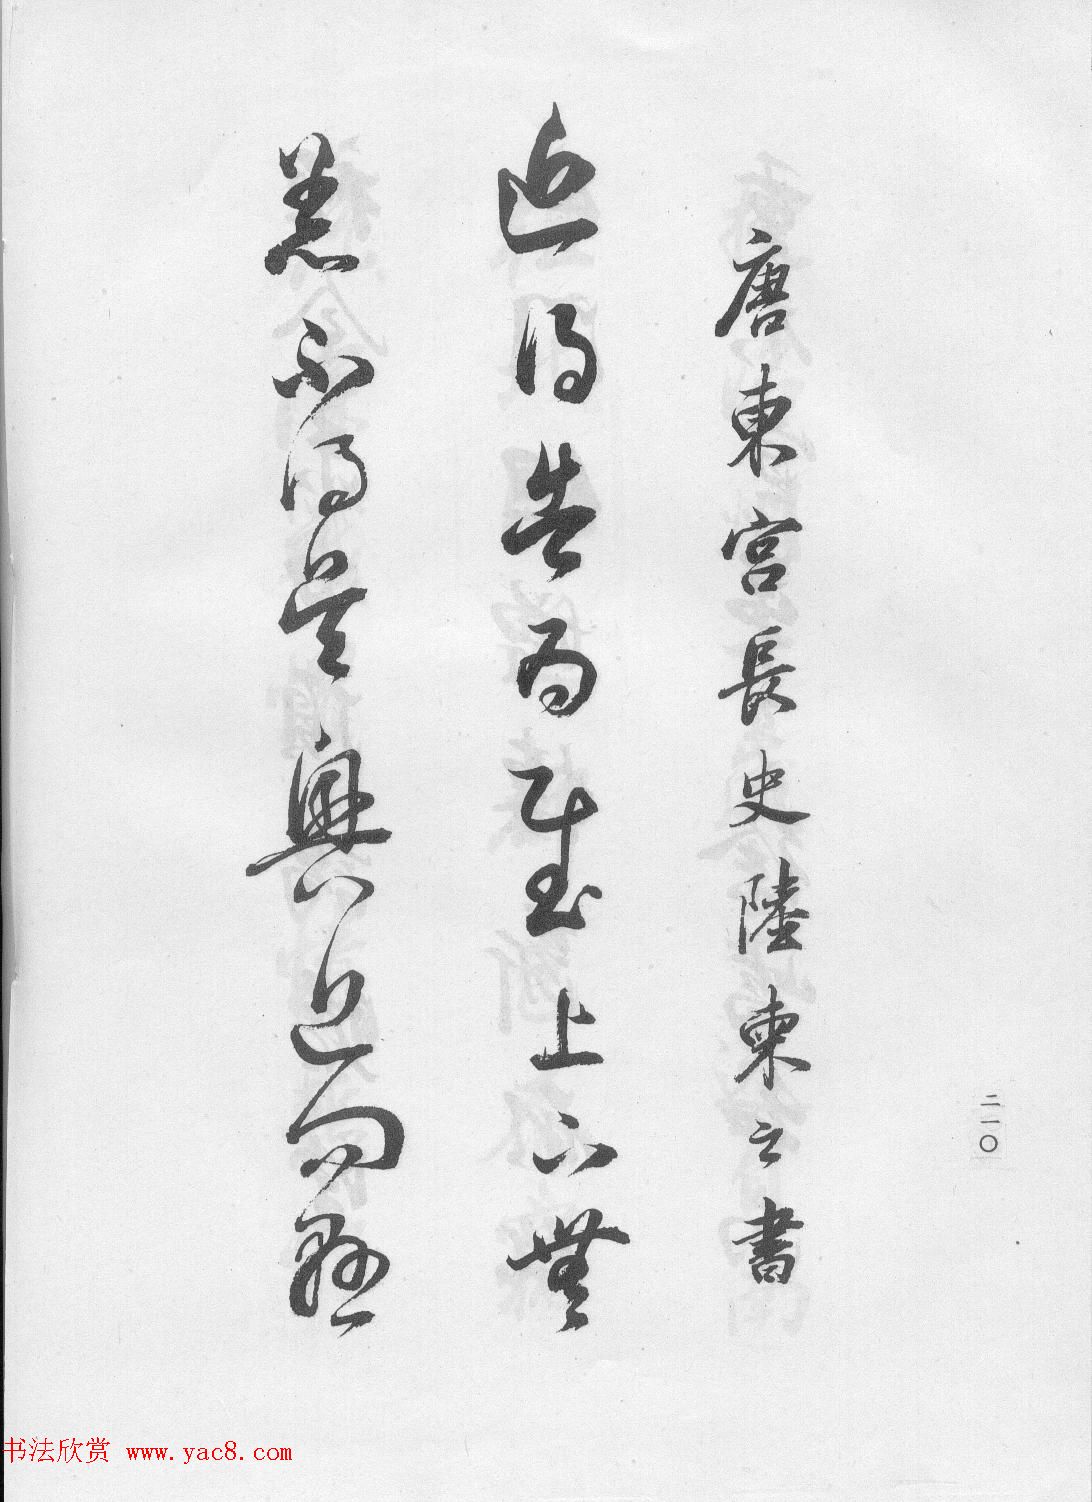 唐東宮長史陸柬之書
近得告為慰上下無
恙不得吳興近問懸
二一〇
书法欣赏 www.yac8.com